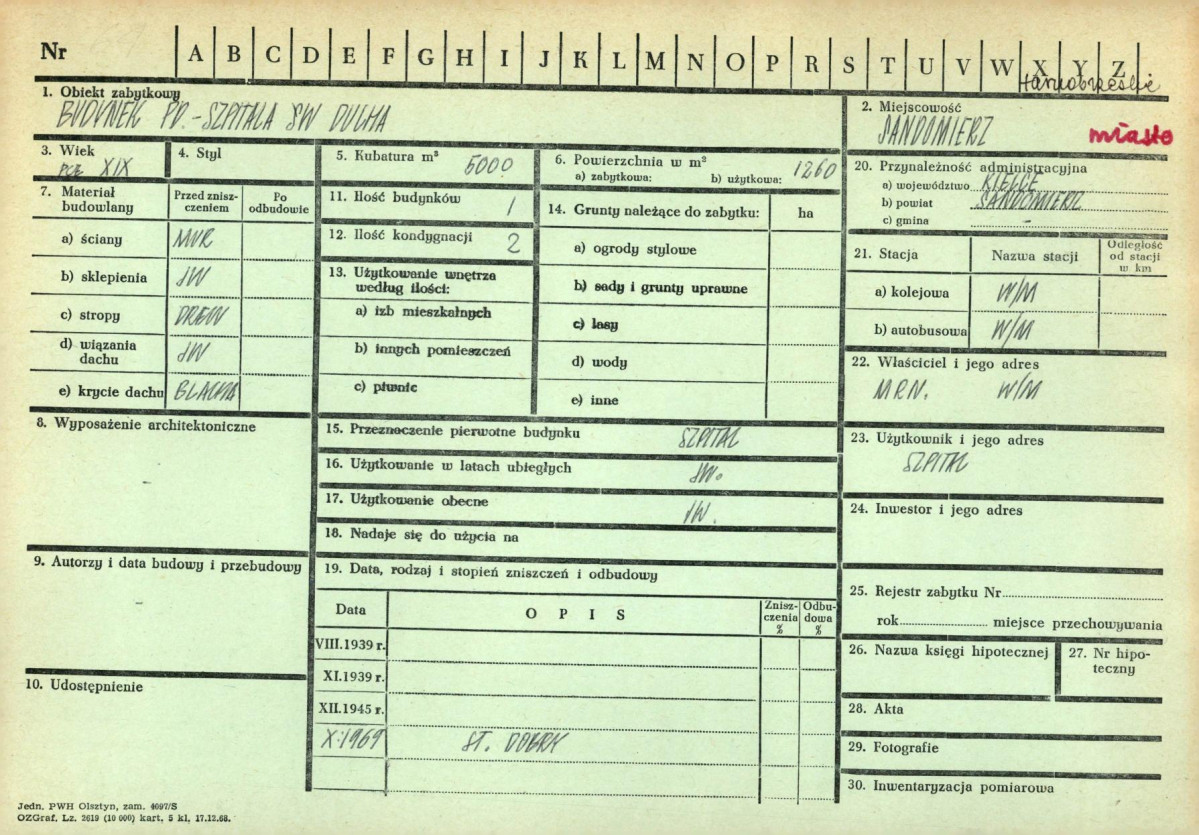 Nr A B C D E F G H I J K L M N O P R S T U V W X Y Z .
Tarnobrzeskie
1. Obiekt zabytkowy
BUDYNEK PD.-SZPITALA SW DUCHA
2. Miejscowość
SANDOMIERZ miasto
3. Wiek
pcz XIX
4. Styl
5. Kubatura m³ 5000
6. Powierzchnia w m²
a) zabytkowa: b) użytkowa: 1260
20. Przynależność administracyjna
a) województwo KIELCE
b) powiat SANDOMIERZ
c) gmina -
7. Materiał budowlany
Przed zniszczeniem
Po odbudowie
a) ściany MUR
b) sklepienia JW
c) stropy DREW
d) wiązania dachu JW
e) krycie dachu BLACHA
11. Ilość budynków 1
12. Ilość kondygnacji 2
13. Użytkowanie wnętrza według ilości:
a) izb mieszkalnych
b) innych pomieszczeń
c) piwnic
14. Grunty należące do zabytku: ha
a) ogrody stylowe
b) sady i grunty uprawne
c) lasy
d) wody
e) inne
21. Stacja
Nazwa stacji
Odległość od stacji w km
a) kolejowa W/M
b) autobusowa W/M
22. Właściciel i jego adres
MRN. W/M
8. Wyposażenie architektoniczne
-
15. Przeznaczenie pierwotne budynku SZPITAL
16. Użytkowanie w latach ubiegłych JW.
17. Użytkowanie obecne JW.
18. Nadaje się do użycia na
23. Użytkownik i jego adres
SZPITAL
24. Inwestor i jego adres
9. Autorzy i data budowy i przebudowy
-
19. Data, rodzaj i stopień zniszczeń i odbudowy
Data
O P I S
Zniszczenia %
Odbudowa %
VIII.1939 r.
XI.1939 r.
XII.1945 r.
X.1969 ST. DOBRY
25. Rejestr zabytku Nr
rok miejsce przechowywania
26. Nazwa księgi hipotecznej
27. Nr hipoteczny
10. Udostępnienie
28. Akta
29. Fotografie
30. Inwentaryzacja pomiarowa
Jedn. PWH Olsztyn, zam. 4097/S
OZGraf. Lz. 2619 (10 000) kart. 5 kl. 17.12.68.